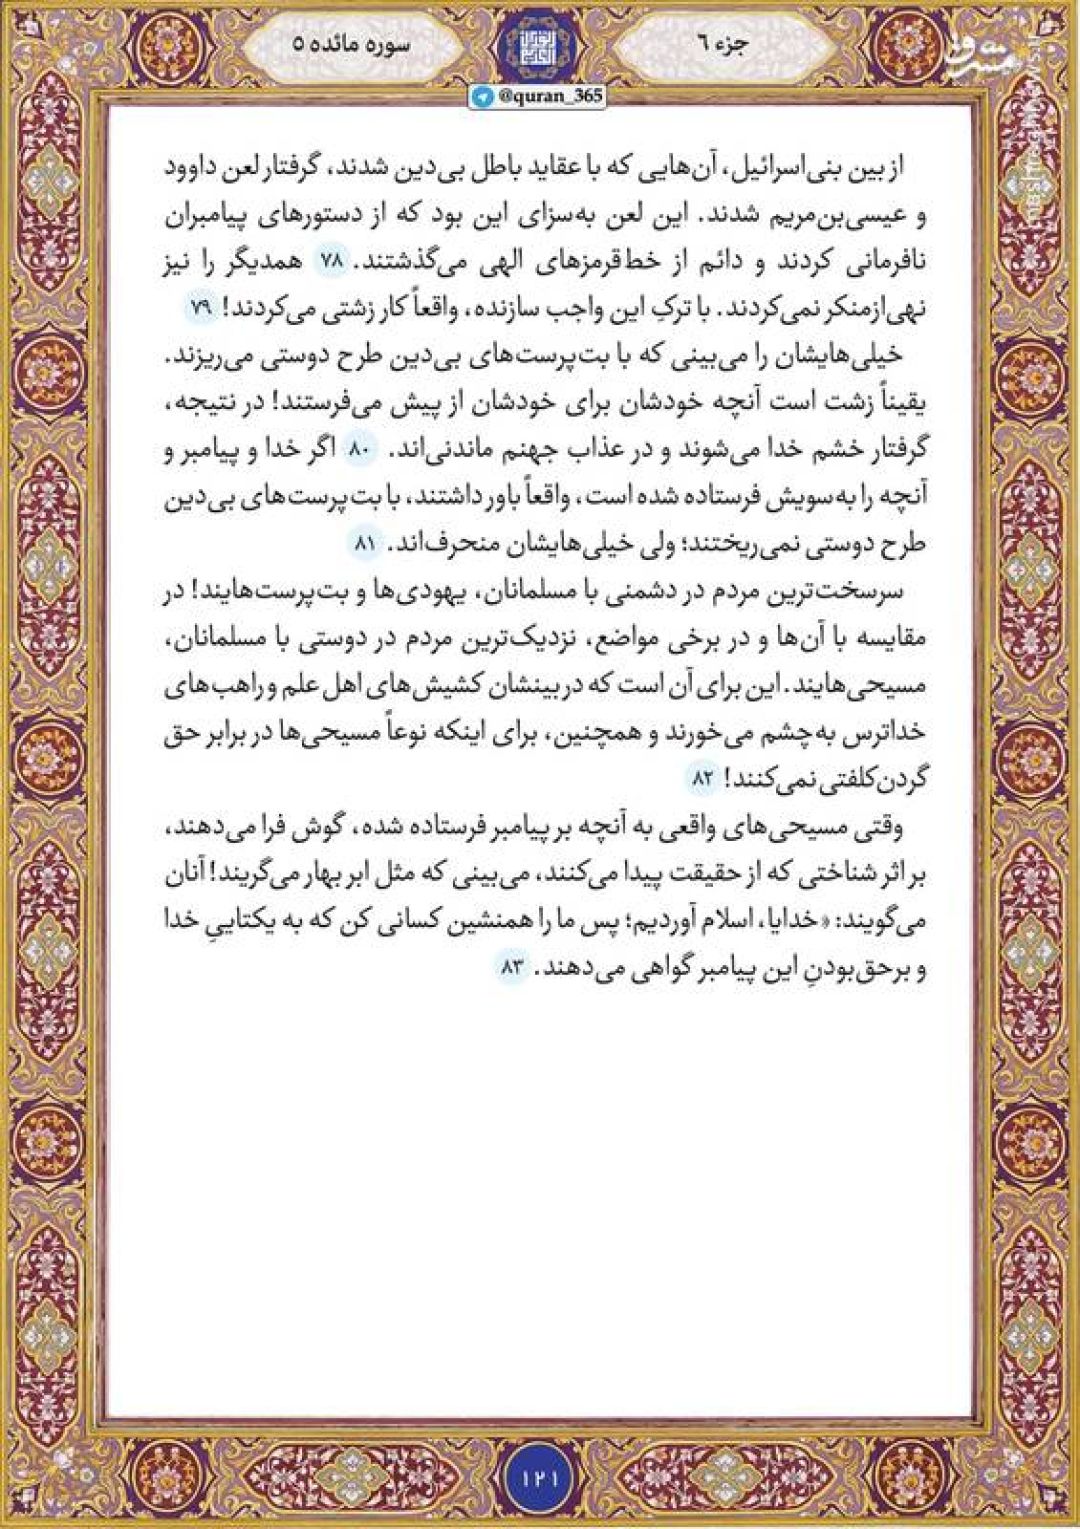 جزء ۶
سوره مائده ۵
@quran_365
از بین بنی‌اسرائیل، آن‌هایی که با عقاید باطل بی‌دین شدند، گرفتار لعن داوود
و عیسی‌بن‌مریم شدند. این لعن به‌سزای این بود که از دستورهای پیامبران
نافرمانی کردند و دائم از خط‌قرمزهای الهی می‌گذشتند. ۷۸ همدیگر را نیز
نهی‌ازمنکر نمی‌کردند. با ترکِ این واجب سازنده، واقعاً کار زشتی می‌کردند! ۷۹
خیلی‌هایشان را می‌بینی که با بت‌پرست‌های بی‌دین طرح دوستی می‌ریزند.
یقیناً زشت است آنچه خودشان برای خودشان از پیش می‌فرستند! در نتیجه،
گرفتار خشم خدا می‌شوند و در عذاب جهنم ماندنی‌اند. ۸۰ اگر خدا و پیامبر و
آنچه را به‌سویش فرستاده شده است، واقعاً باور داشتند، با بت‌پرست‌های بی‌دین
طرح دوستی نمی‌ریختند؛ ولی خیلی‌هایشان منحرف‌اند. ۸۱
سرسخت‌ترین مردم در دشمنی با مسلمانان، یهودی‌ها و بت‌پرست‌هایند! در
مقایسه با آن‌ها و در برخی مواضع، نزدیک‌ترین مردم در دوستی با مسلمانان،
مسیحی‌هایند. این برای آن است که در بینشان کشیش‌های اهل علم و راهب‌های
خداترس به‌چشم می‌خورند و همچنین، برای اینکه نوعاً مسیحی‌ها در برابر حق
گردن‌کلفتی نمی‌کنند! ۸۲
وقتی مسیحی‌های واقعی به آنچه بر پیامبر فرستاده شده، گوش فرا می‌دهند،
بر اثر شناختی که از حقیقت پیدا می‌کنند، می‌بینی که مثل ابر بهار می‌گریند! آنان
می‌گویند: «خدایا، اسلام آوردیم؛ پس ما را همنشین کسانی کن که به یکتاییِ خدا
و برحق‌بودنِ این پیامبر گواهی می‌دهند. ۸۳
۱۲۱